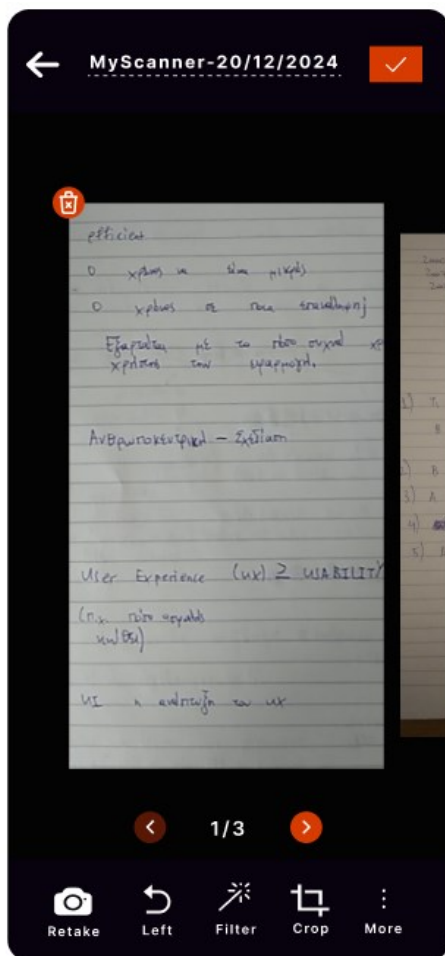 MyScanner-20/12/2024
efficient
Ο χρόνος να είναι μικρός
Ο χρόνος σε ποια επανάληψη
Εξαρτάται με το πόσο συχνά
χρήστης την εφαρμογή.
Ανθρωποκεντρική - Σχεδίαση
User Experience (UX) ≥ USABILITY
(π.χ. πόσο ασφαλής
UI η ανάπτυξη του UX
1/3
Retake
Left
Filter
Crop
More